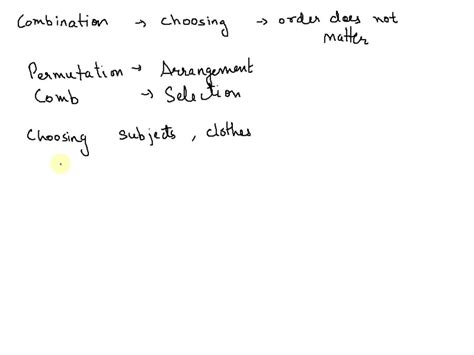 Combination → choosing → order does not matter
Permutation → Arrangement
Comb → Selection
Choosing subjects, clothes